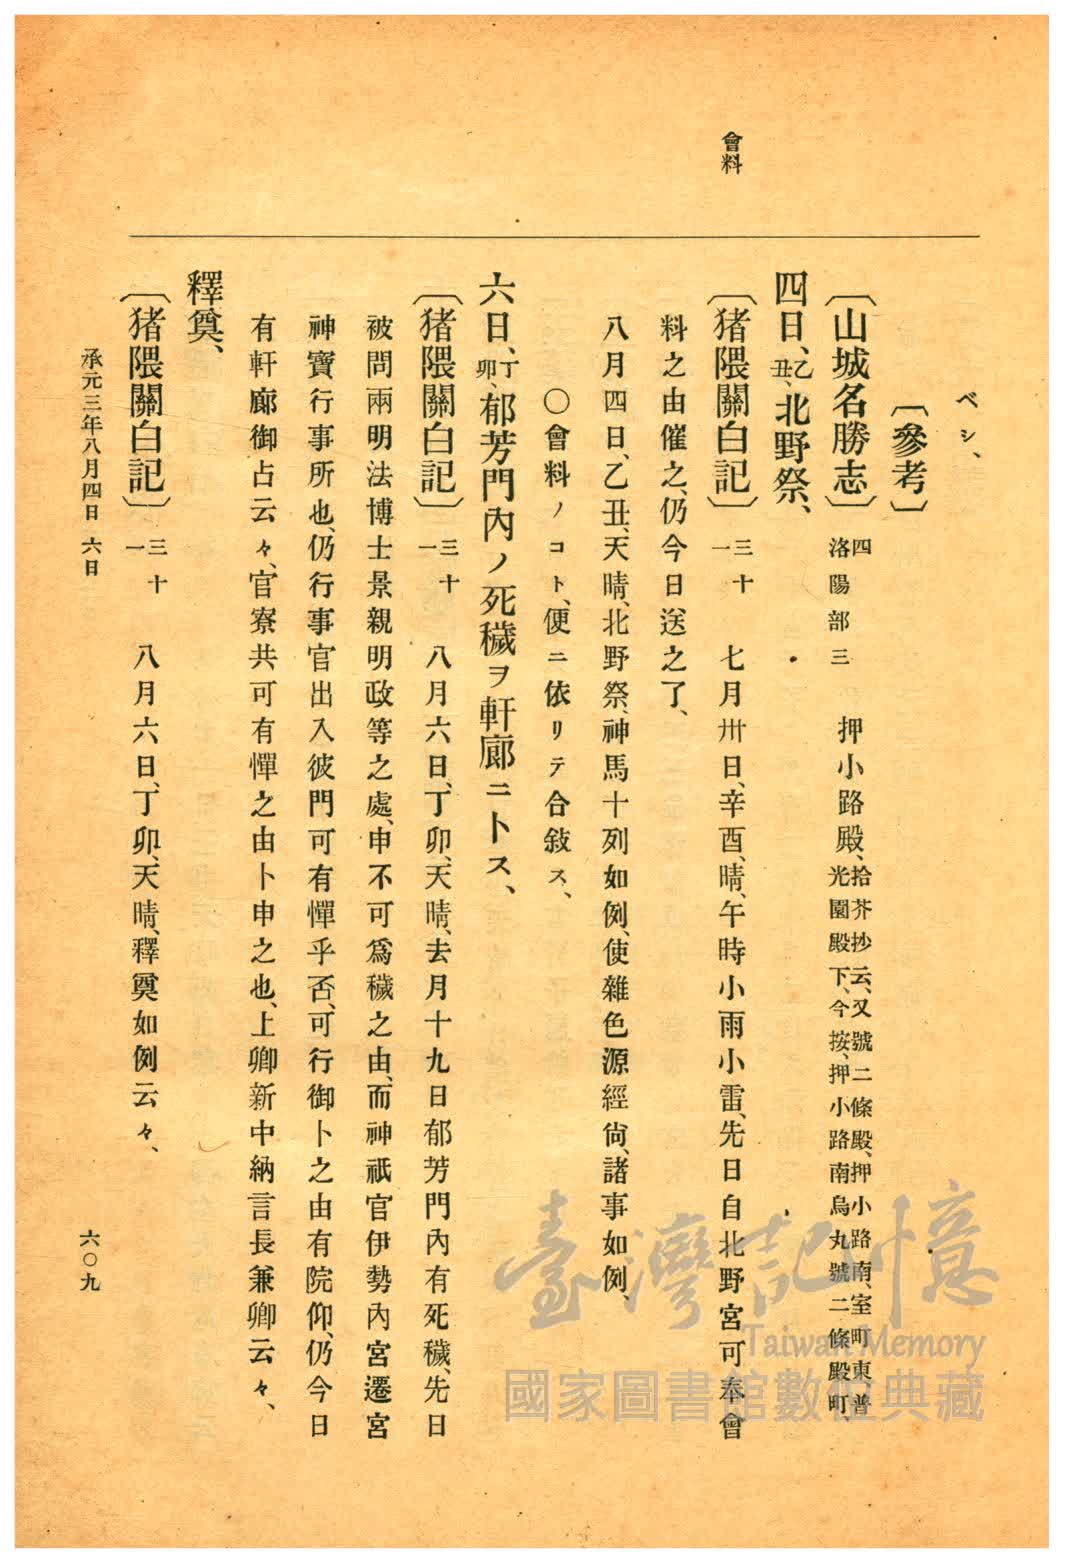 會料
ベシ、
〔參考〕
〔山城名勝志〕四洛陽部三 押小路殿、拾芥抄云、又號二條殿、押小路南、室町東普光園殿下、今按、押小路南烏丸號二條殿町、
四日、乙丑、北野祭、
〔猪隈關白記〕三十一 七月卅日、辛酉、晴、午時小雨小雷、先日自北野宮可奉會
料之由催之、仍今日送之了、
八月四日、乙丑、天晴、北野祭、神馬十列如例、使雜色源經尙、諸事如例、
〇會料ノコト、便ニ依リテ合敍ス、
六日、丁卯、郁芳門內ノ死穢ヲ軒廊ニトス、
〔猪隈關白記〕三十一 八月六日、丁卯、天晴、去月十九日郁芳門內有死穢、先日
被問兩明法博士景親明政等之處、申不可爲穢之由、而神祇官伊勢內宮遷宮
神寶行事所也、仍行事官出入彼門可有憚乎否、可行御卜之由有院仰、仍今日
有軒廊御占云々、官寮共可有憚之由卜申之也、上卿新中納言長兼卿云々、
釋奠、
〔猪隈關白記〕三十一 八月六日、丁卯、天晴、釋奠如例云々、
承元三年八月四日 六日
六〇九
臺灣記憶
Taiwan Memory
國家圖書館數位典藏